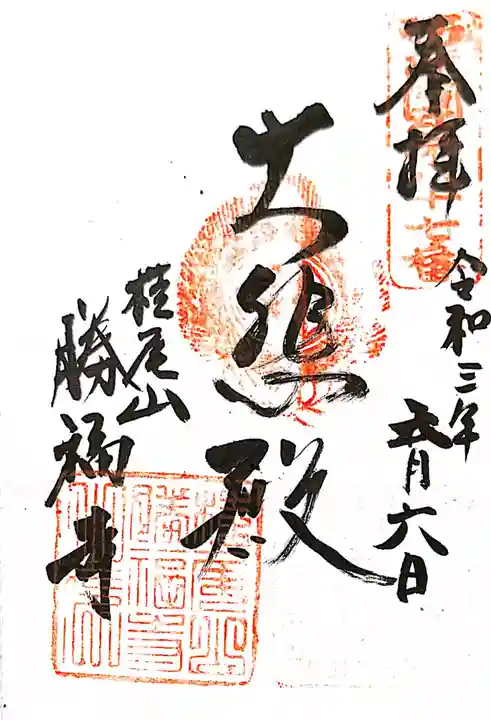 奉拝
令和三年
五月六日
大悲殿
桂尾山
勝福寺